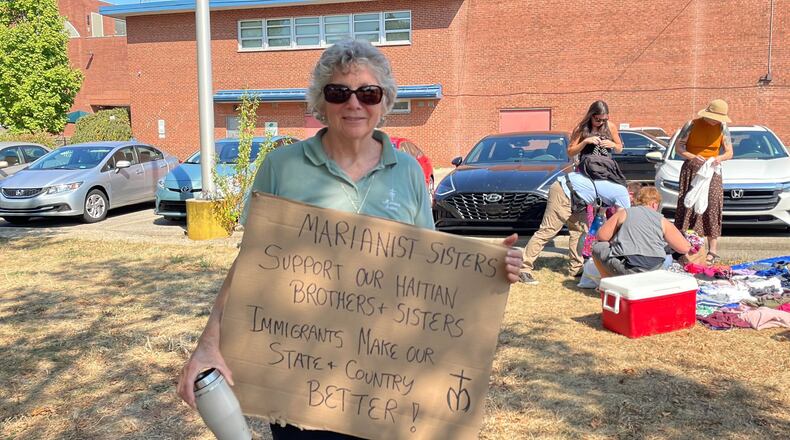 MARIANIST SISTERS
SUPPORT OUR HAITIAN
BROTHERS + SISTERS
IMMIGRANTS MAKE OUR
STATE + COUNTRY
BETTER!